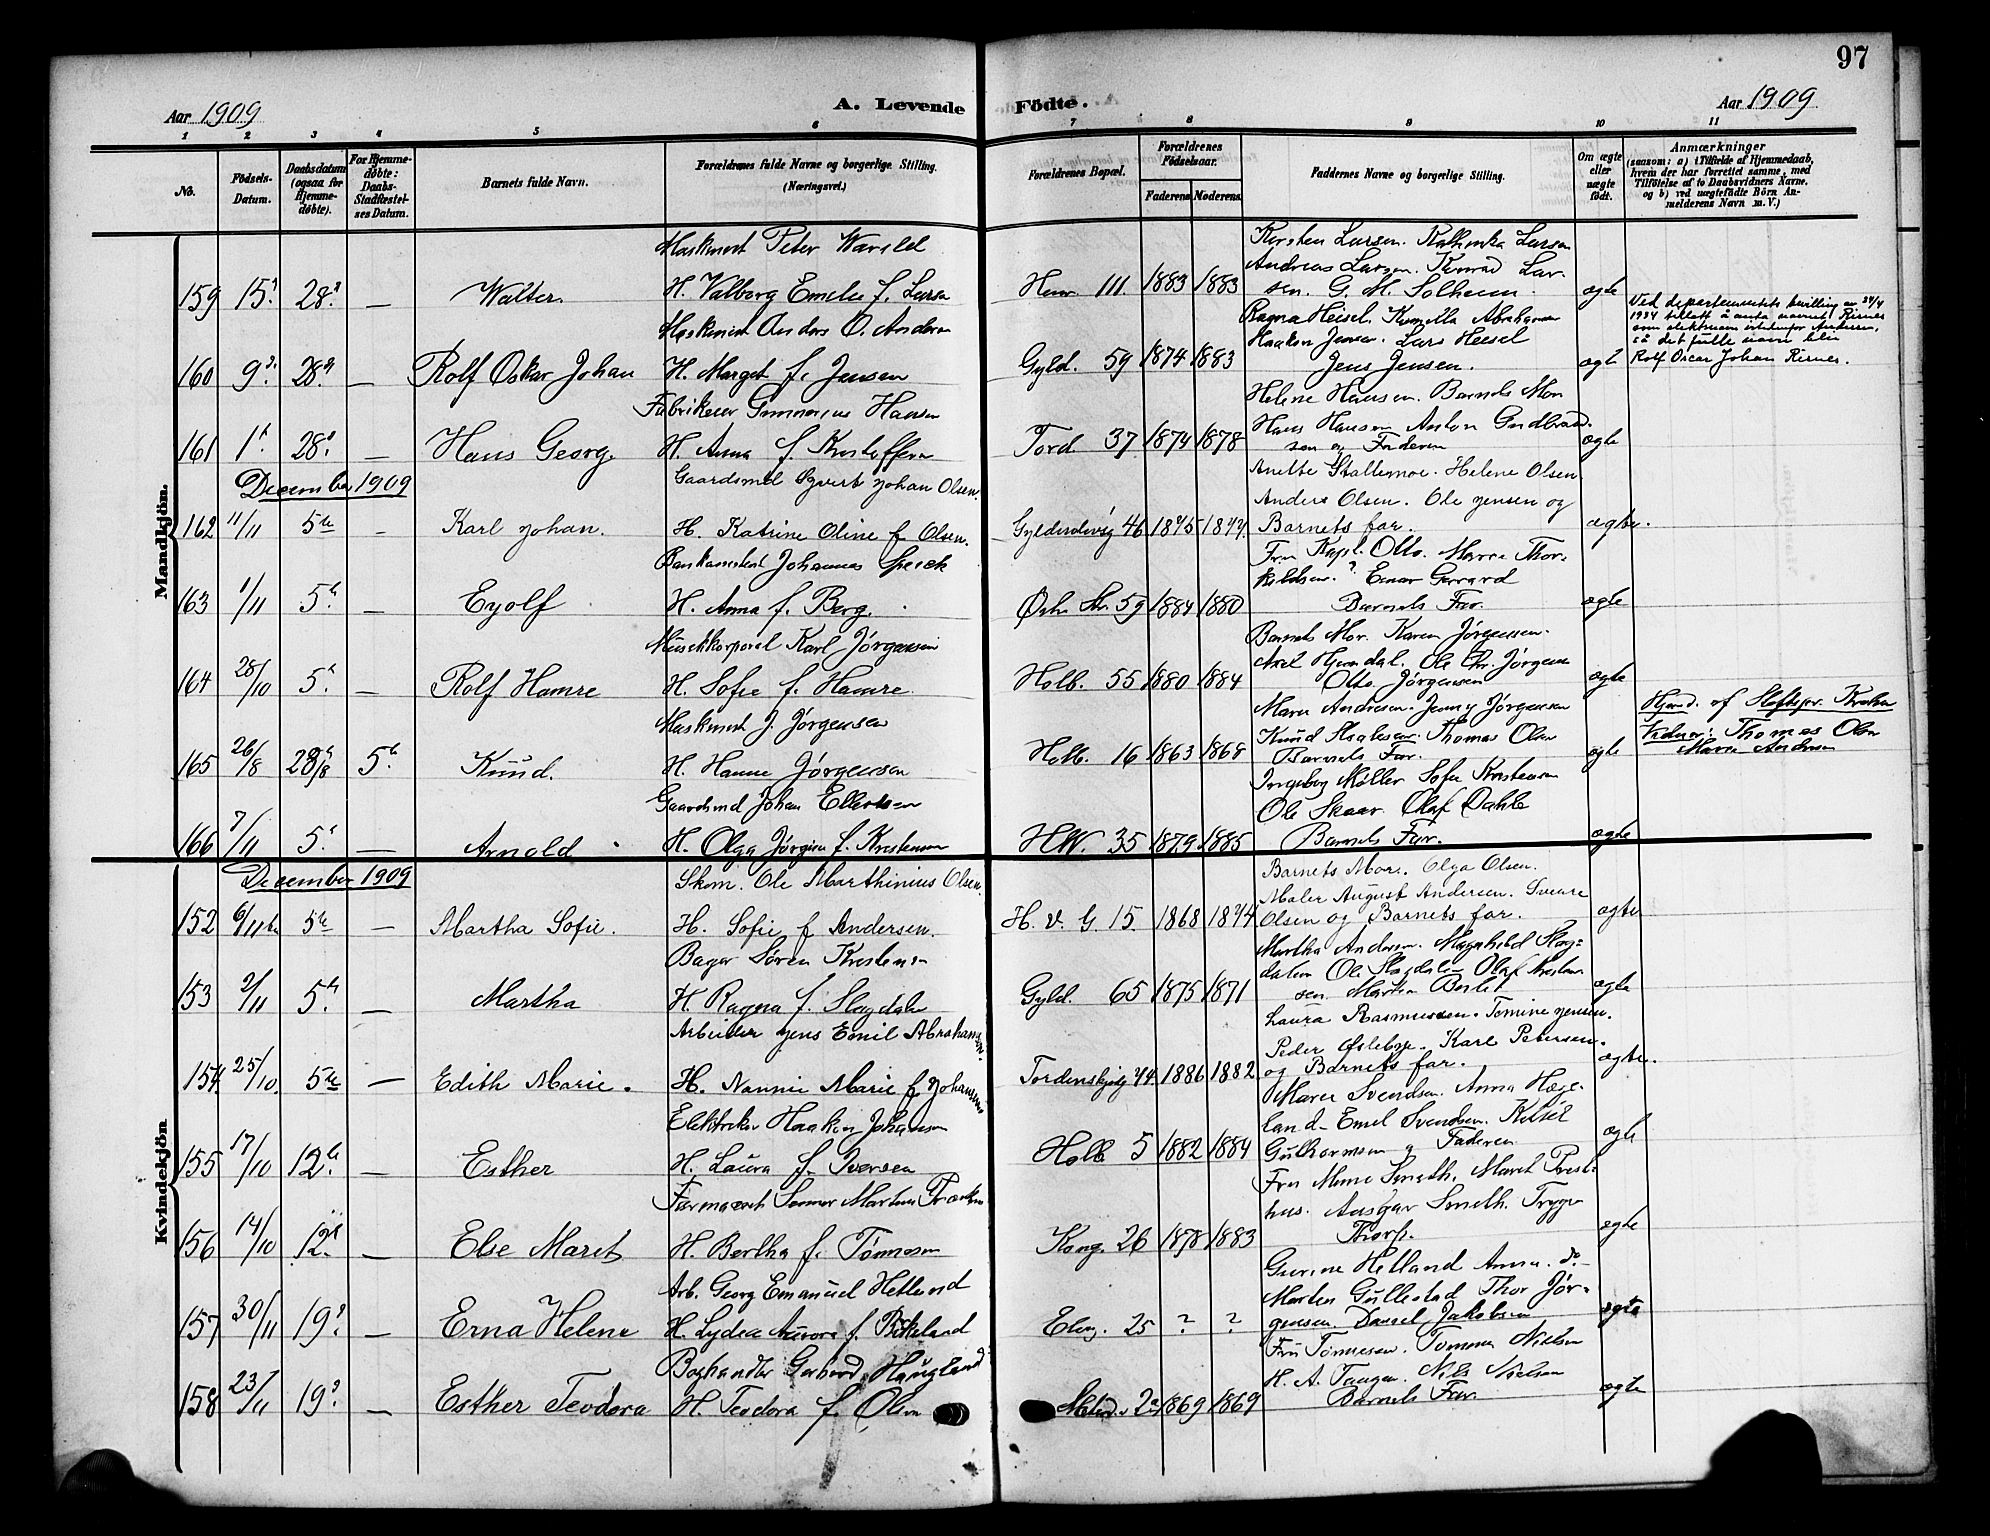 97
Aar 1909
A. Levende
Födte.
Aar 1909
1 2 3 4 5 6 7 8 9 10 11
No.
Födsels-Datum.
Daabsdatum (ogsaa for Hjemme-döbte).
For Hjemme-döbte: Daabs-Stadfæstel-ses Datum.
Barnets fulde Navn.
Forældrenes fulde Navne og borgerlige Stilling. (Næringsvei.)
Forældrenes Bopæl.
Forældrenes Födselsaar.
Faderens
Moderens
Faddernes Navne og borgerlige Stilling.
Om ægte eller uægte födt.
Anmærkninger
(saasom: a) i Tilfælde af Hjemmedaab, hvem der har forrettet samme, med Tilföielse af to Daabsvidners Navne, og b) ved uægtefödte Börn An-melderens Navn m. V.)
Mandkjön.
Maskinist Peter Warild
159 15. 28. — Walter. H. Valborg Emelie f. Larsen
Henr. 111. 1883 1883
Kirsten Larsen. Kathinka Larsen
Andreas Larsen. Konrad Lar-
sen. G. M. Solheim.
ægte
Maskinist Anders O. Andersen
160 9. 28. — Rolf Oskar Johan H. Marget f. Jensen
Gyld. 59 1874 1883
Ragna Heisel. Kamilla Abrahamsen
Haakon Jensen. Lars Heesel
Jens Jensen.
ægte
Ved departementets bevilling av 24/4
1934 tillatt å anta navnet Risnes
som slektsnavn istedenfor Andersen,
så det fulle navn blir
Rolf Oscar Johan Risnes.
Fabrikeier Gunnerius Hansen
161 1. 28. — Hans Georg H. Anna f. Kristoffersen
Tord. 37. 1874 1878
Helene Hansen. Barnets Mor
Hans Hansen Anton Gudbrand-
sen og Faderen
ægte
December 1909
Gaardsmd Syvert Johan Olsen.
162 11/11 5te - Karl Johan. H. Katrine Oline f. Olsen.
Gyldenløvsg 46 1875 1877.
Anette Stallemoe. Helene Olsen
Anders Olsen. Ole Jensen og
Barnets far.
ægte.
Bankassistent Johannes
163 1/11 5. — Eyolf H. Anna f. Berg.
Østr. Str. 59 1884 1880
Fru Kapt. Otto. Marie Thor-
kildsen. Einar Gerrard
Barnets Far.
ægte
Musikkorporal Karl Jørgensen
164 28/10 5. — Rolf Hamre H. Sofie f. Hamre
Holb. 55 1880 1884
Barnets Mor. Karen Jørgensen.
Axel Hjemdal. Ole Chr. Jørgensen
Otto Jørgensen
ægte
Maskinist J. Jørgensen
165 26/8 28/8 5. Knud. H. Hanne Jørgensen
Holb. 16 1863 1868
Marie Andresen. Jenny Jørgensen
Knud. Thomas Olsen
Barnets Far.
ægte
Hjemd. af Stiftspr.
Vidner: Thomas Olsen
Marie Andersen
Gaardsmd Johan Ellertsen
166 7/11 5. — Arnold H. Olga Jørgine f. Kristensen
H.W. 35 1879 1885
Ingeborg Møller Sofie Kristensen
Ole Skaar. Olaf Dahle
Barnets Far.
ægte
Kvindekjön
December 1909
Skom. Ole Marthinius Olsen.
152 6/11 5te — Martha Sofie. H. Sofie f. Andersen.
H. v. G. 15. 1868 1874
Barnets More. Olga Olsen.
Maler August Andersen. Sverre
Olsen og Barnets far.
ægte
Bager Søren Kristensen
153 2/11 5. — Martha H. Ragna f. Slogdalen
Gyld. 65 1875 1871
Martha Andersen. Magnhild Slog-
dalen Ole Slogdalen Olaf Kristen-
sen. Martin
ægte
Arbeider Jens Emil Abrahamsen.
154. 25/10. 5te — Edith Marie. H. Nannie Marie f. Johansen.
Tordenskjolg 44. 1886 1882
Laura Rasmussen. Tomine Jensen.
Peder Østebye. Karl Petersen.
og Barnets far.
ægte.
Elektriker Haakon Johansen
155 17/10 12. — Esther H. Laura f. Iversen
Holb. 5 1882 1884
Marie Svendsen. Anna Hæge-
land- Emil Svendsen. Ketil
Guthormsen og Faderen
ægte
Farmaceut Marthin
156 14/10 12. — Else Maret H. Bertha f. Tønnesen
Kong. 26 1878 1883
Fru Mimi Smith. Maret Prest-
hus. Ansgar Smith. Trygve
Thorp.
ægte
Arb. Georg Emanuel Hetland
157 30/11 19. — Erna Helene H. Lydia Aurora f. Birkeland
Elv. 25 ? ?
Gurine Helland Anna. do.-
Marten Gullestad Thor Jør-
gensen. Daniel Jakobsen
ægte
Boghandler Gerhard Haugland
158 23/11 19. — Esther Teodora H. Teodora f. Olsen
1869 1869
Fru Tønnesen. Tomme Nielsen
H. A. Tangen. Nils Nielsen
Barnets Far.
ægte